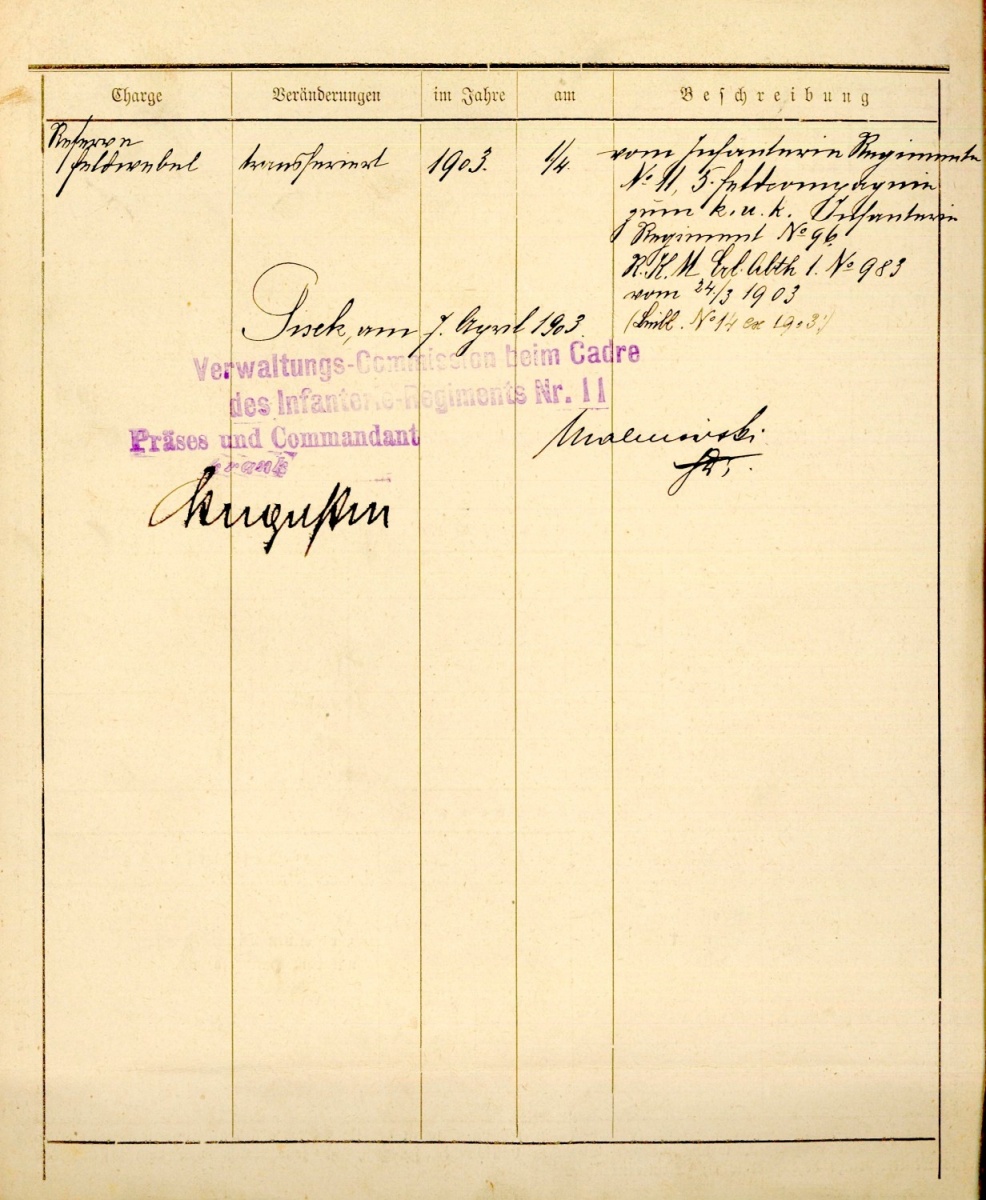 Charge Veränderungen im Jahre am Beschreibung
Reserve
feldwebel transferiert 1903. 1/4. vom Infanterie Regimente
No 11, 5. Feldcompagnie
zum k. u. k. Infanterie
Regiment No 96
R. K. M. Erl. Abth 1. No 983
vom 24./3 1903
No 14 ex 1903.)
Pisek, am 7. April 1903.
Verwaltungs-Commission beim Cadre
des Infanterie-Regiments Nr. 11
Präses und Commandant
Malinowski
Augustin